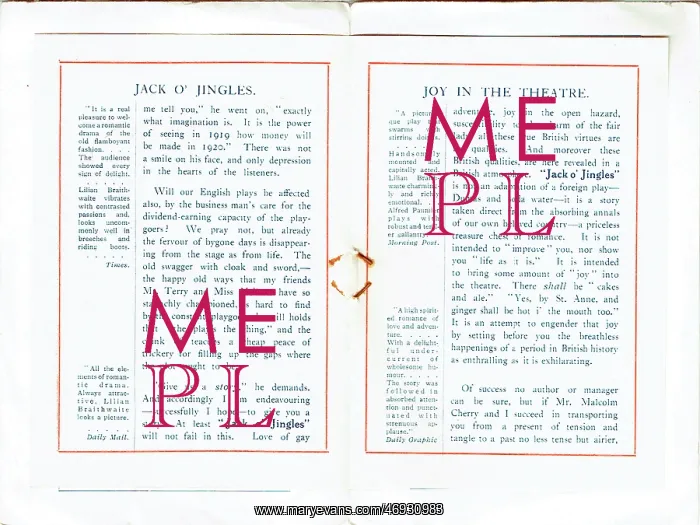 JACK O' JINGLES.
"It is a real
pleasure to wel-
come a romantic
drama of the
old flamboyant
fashion. . . .
The audience
showed every
sign of delight.
. . . . .
Lilian Braith-
waite vibrates
with contrasted
passions and
looks uncom-
monly well in
breeches and
riding boots.
. . . . .
Times.
"All the ele-
ments of roman-
tic drama.
Always attrac-
tive, Lilian
Braithwaite
looks a picture.
. . . . .
Daily Mail.
me tell you," he went on, "exactly
what imagination is. It is the power
of seeing in 1919 how money will
be made in 1920." There was not
a smile on his face, and only depression
in the hearts of the listeners.
Will our English plays be affected
also, by the business man's care for the
dividend-earning capacity of the play-
goers? We pray not, but already
the fervour of bygone days is disappear-
ing from the stage as from life. The
old swagger with cloak and sword,—
the happy old ways that my friends
Terry and Miss have so
championed, is hard to find
the constant playgoer still holds
the play's the thing," and the
a cheap peace of
trickery for filling up the gaps where
"Give a story," he demands.
And accordingly I am endeavouring
—successfully I hope—to give you a
At least Jingles"
will not fail in this. Love of gay
ME
PL
JOY IN THE THEATRE.
"A
que play
swarms with
stirring
Handsomely
mounted and
capitally acted.
Lilian Braith-
waite charming-
ly and richly
emotional.
Alfred Paumier
plays with
robust and
er gallantry.
Morning Post.
"A high spirit-
ed romance of
love and adven-
ture. . . .
With a delight-
ful under-
current of
wholesome hu-
mour. . . .
The story was
followed in
absorbed atten-
tion and punct-
uated with
strenuous ap-
plause."
Daily Graphic
adventure, joy in the open hazard,
to charm of the fair
lady, all these true British virtues are
qualities. And moreover these
British qualities, are here revealed in a
British "Jack o' Jingles"
is not an adaptation of a foreign play—
and soda water—it is a story
taken direct from the absorbing annals
of our own beloved country—a priceless
treasure chest of romance. It is not
intended to "improve" you, nor show
you "life as it is." It is intended
to bring some amount of "joy" into
the theatre. There shall be "cakes
and ale." "Yes, by St. Anne, and
ginger shall be hot i' the mouth too."
It is an attempt to engender that joy
by setting before you the breathless
happenings of a period in British history
as enthralling as it is exhilarating.
Of success no author or manager
can be sure, but if Mr. Malcolm
Cherry and I succeed in transporting
you from a present of tension and
tangle to a past no less tense but airier,
ME
PL
www.maryevans.com/46930988